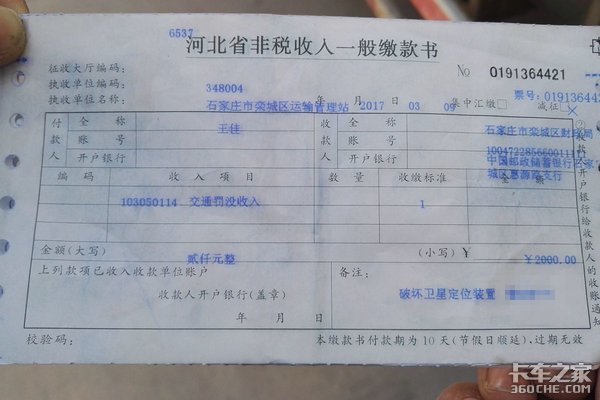 6537
河北省非税收入一般缴款书
征收大厅编码：
No 0191364421
执收单位编码： 348004
票号：019136442
执收单位名称： 石家庄市栾城区运输管理站 2017年 03月 09日 集中汇缴□ 减征□
付款人 全称 王佳 收款人 全称 石家庄市栾城区财政局
账号 账号
开户银行 开户银行 中国邮政储蓄银行
城区惠源路支行
编码 收入项目 数量 收缴标准 金额
103050114 交通罚没收入 1
金额(大写) 贰仟元整 (小写) ¥ ¥2000.00
上列款项已收入收款单位账户 备注：
收款人开户银行(盖章) 破坏卫星定位装置
年 月 日
校验码： 本缴款书付款期为10天(节假日顺延),过期无效
开户银行给收款人的收账通知
卡车之家
360che.com